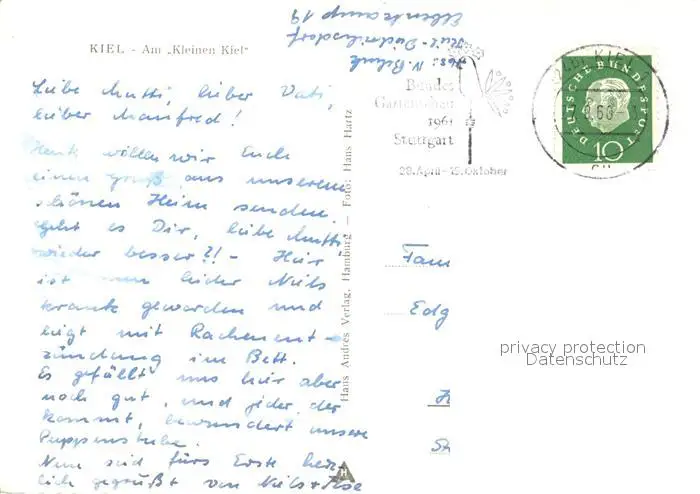 KIEL - Am „Kleinen Kiel"
Liebe Mutti, lieber Vati,
lieber Manfred!
Heute wollen wir Euch
einen Gruß aus unserem
schönen Heim senden.
Geht es Dir, liebe Mutti
wieder besser?! - Hier
ist nun leider Niels
krank geworden und
liegt mit Rachenent-
zündung im Bett.
Es gefällt uns hier aber
noch gut, und jeder, der
kommt, bewundert unsere
Puppenstube.
Nun seid fürs Erste herz-
lich gegrüßt von Niels +
Hans Andres Verlag, Hamburg — Foto: Hans Hartz
H
Abs: N.
Kiel-
Elbenkamp 19
Bundes
Gartenschau
1961
Stuttgart
28. April - 15. Oktober
KIEL
DEUTSCHE BUNDESPOST
10
Fam
Edg
K
St
privacy protection
Datenschutz